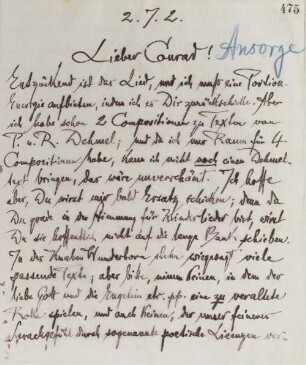 475
2.7.2.
Lieber Conrad! Ansorge
Entzückend ist das Lied, und ich muß eine Portion
Energie aufbieten, indem ich es Dir zurückschicke. Aber
ich habe schon 2 Compositionen zu Texten von
P. u. R. Dehmel; und da ich nur Raum für 4
Compositionen habe, kann ich nicht noch einen Dehmel-
text bringen, das wäre unverschämt. Ich hoffe
aber, Du wirst mir bald Ersatz schicken; denn da
Du grade in der Stimmung für Kinderlieder bist, wirst
Du sie hoffentlich nicht auf die lange Bank schieben.
In des Knaben Wunderhorn stehn wiegesagt viele
passende Texte; aber bitte, nimm keinen, in dem der
liebe Gott und die Engelein etc. pp. eine zu veraltete
Rolle spielen, und auch keinen, der unser feineres
Sprachgefühl durch sogenannte poetische Licenzen ver-